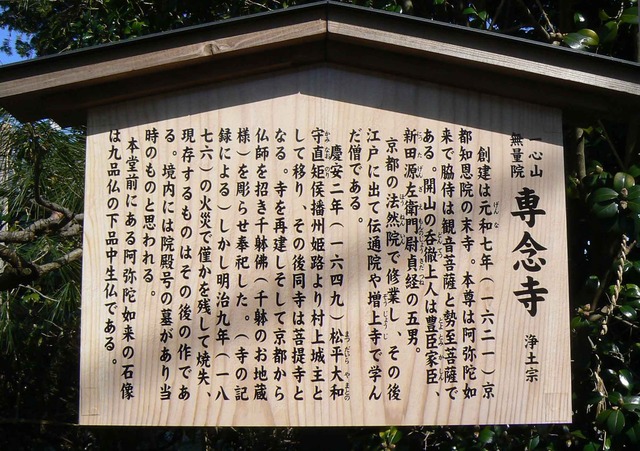 一心山
無量院
専念寺
浄土宗
創建は元和七年（一六二一）京
都知恩院の末寺。本尊は阿弥陀如
来で脇侍は観音菩薩と勢至菩薩で
ある。開山の呑徹上人は豊臣家臣、
新田源左衛門尉貞経の五男。
京都の法然院で修業し、その後
江戸に出て伝通院や増上寺で学ん
だ僧である。
慶安二年（一六四九）松平大和
守直矩侯播州姫路より村上城主と
して移り、その後同寺は菩提寺と
なる。寺を再建しそして京都から
仏師を招き千躰佛（千躰のお地蔵
様）を彫らせ奉祀した。（寺の記
録による）しかし明治九年（一八
七六）の火災で僅かを残して焼失、
現存するものはその後の作であ
る。境内には院殿号の墓があり当
時のものと思われる。
本堂前にある阿弥陀如来の石像
は九品仏の下品中生仏である。